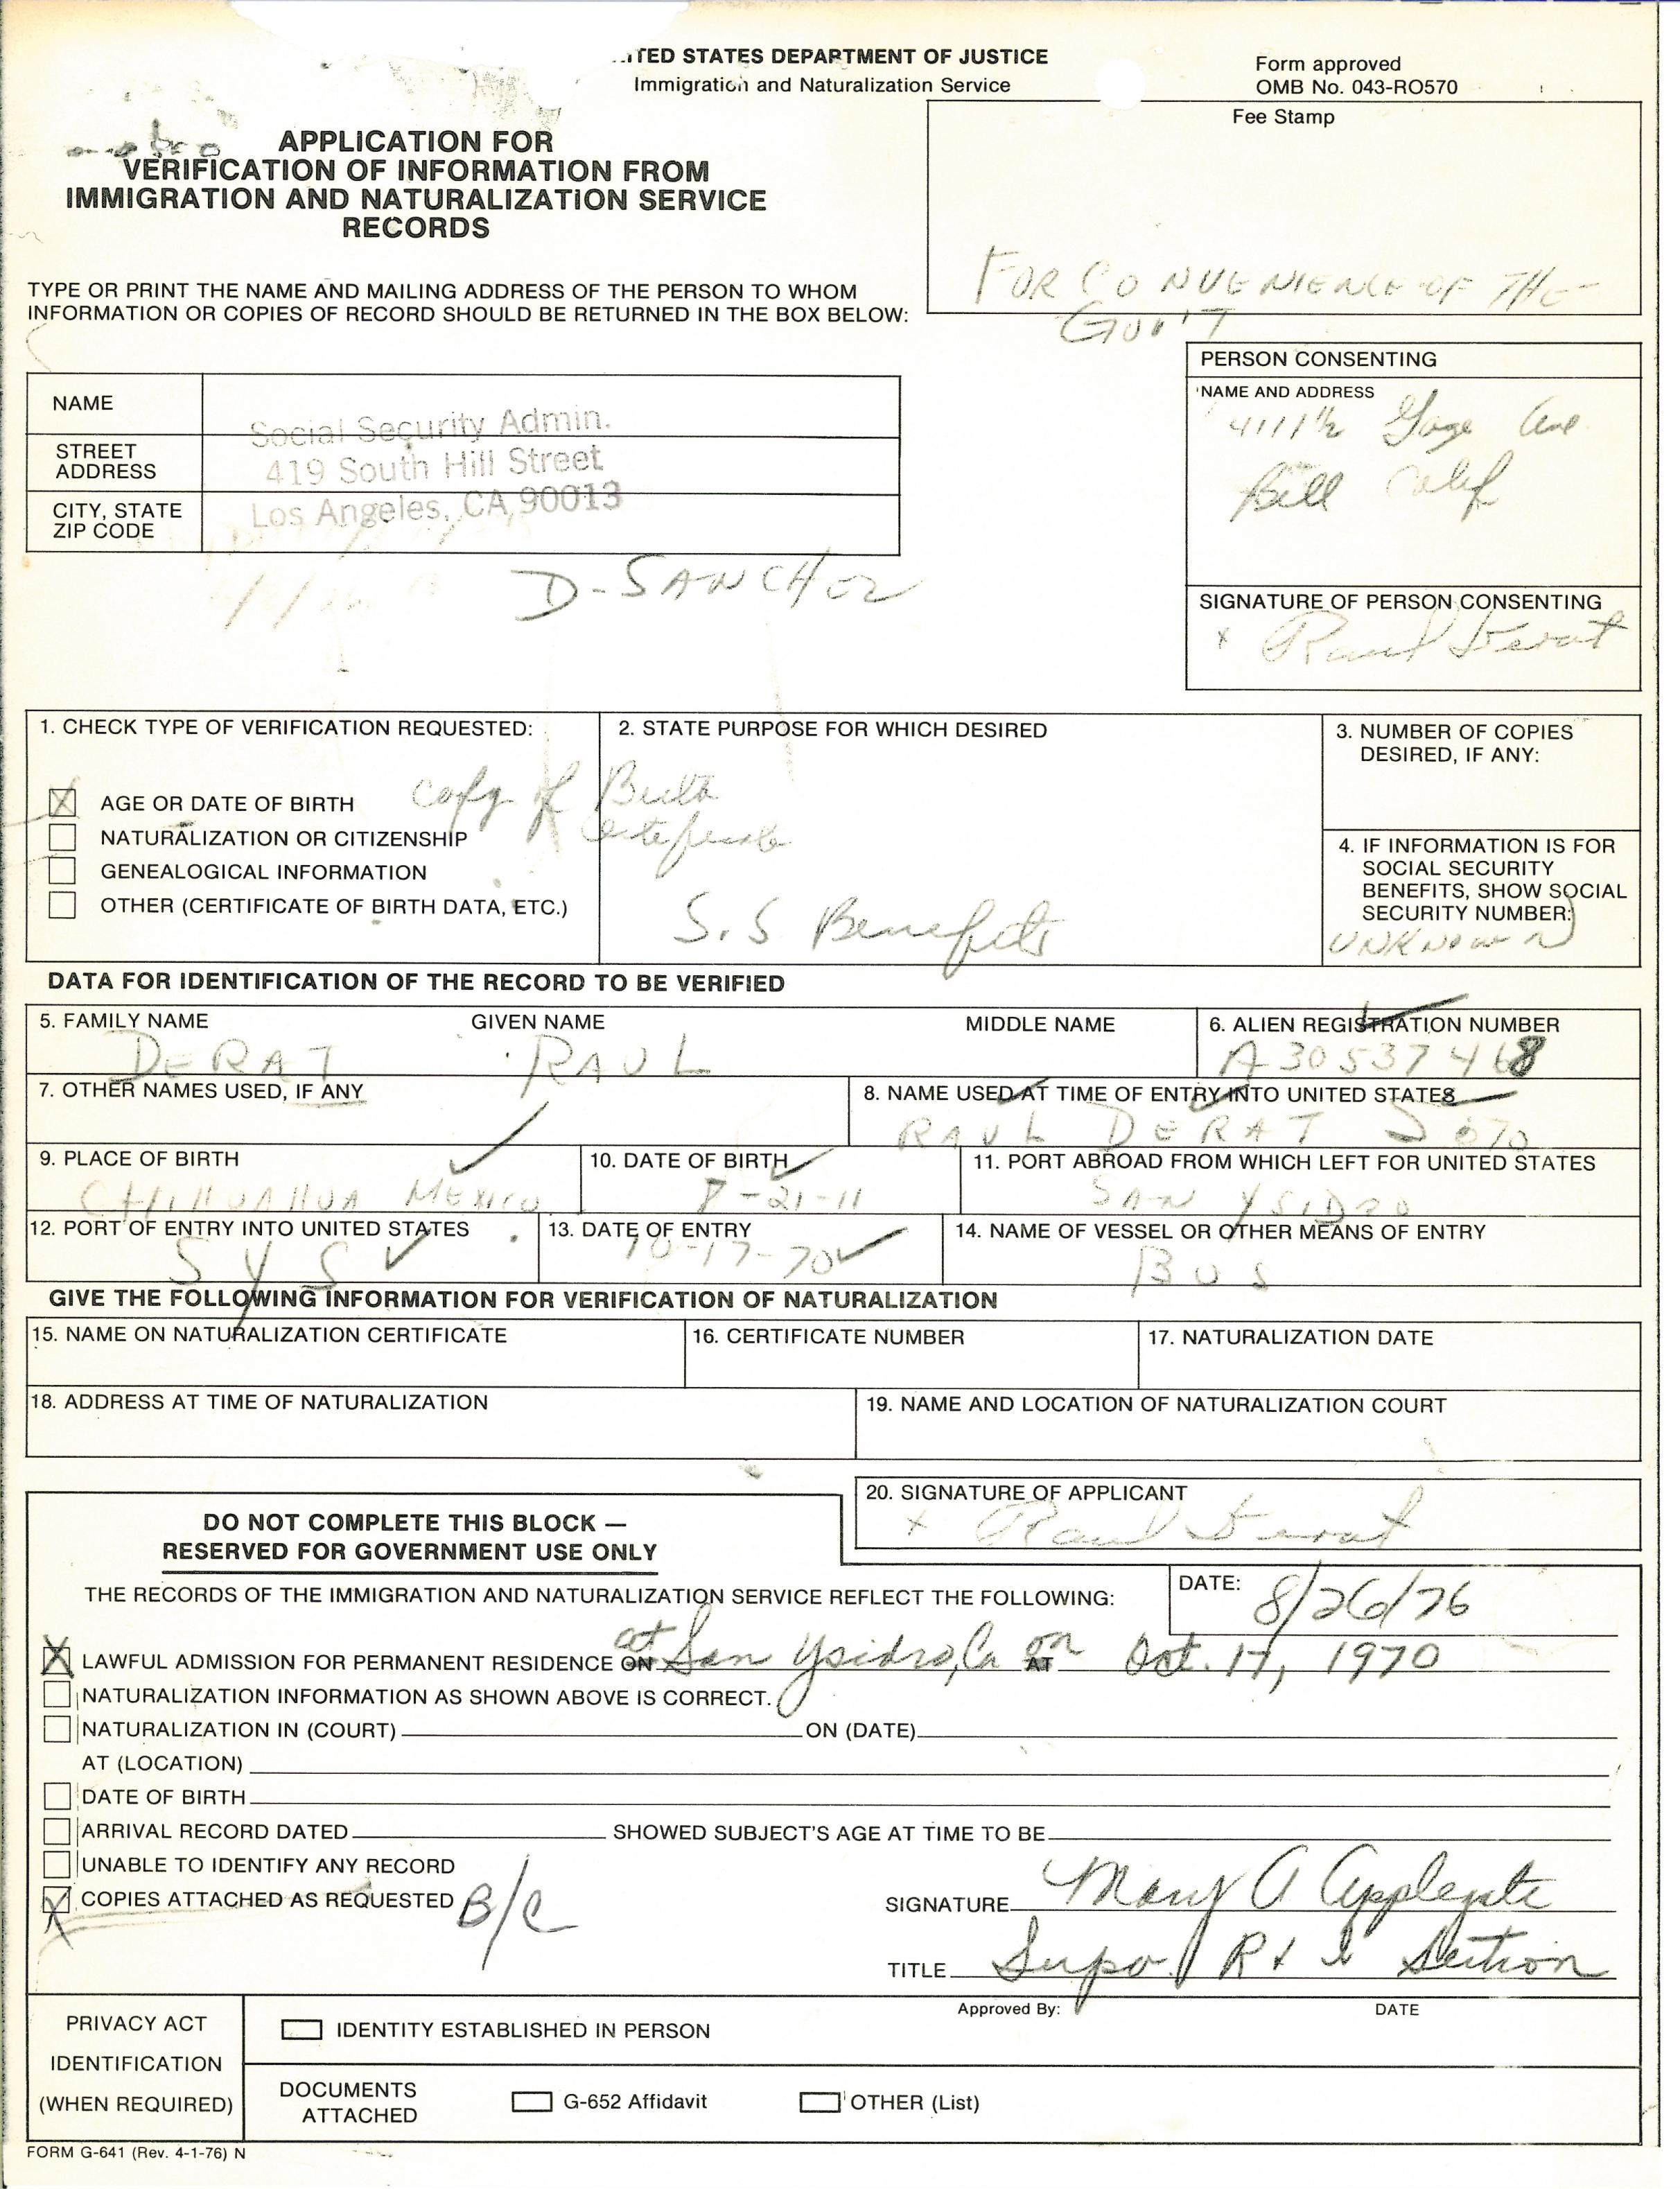 UNITED STATES DEPARTMENT OF JUSTICE
Immigration and Naturalization Service
Form approved
OMB No. 043-RO570
Fee Stamp
FOR CONVENIENCE OF THE
GOV'T
APPLICATION FOR
VERIFICATION OF INFORMATION FROM
IMMIGRATION AND NATURALIZATION SERVICE
RECORDS
TYPE OR PRINT THE NAME AND MAILING ADDRESS OF THE PERSON TO WHOM
INFORMATION OR COPIES OF RECORD SHOULD BE RETURNED IN THE BOX BELOW:
NAME
Social Security Admin.
STREET
ADDRESS
419 South Hill Street
CITY, STATE
ZIP CODE
Los Angeles, CA 90013
D-SANCHEZ
PERSON CONSENTING
NAME AND ADDRESS
4111½ Gage Ave
Bell Calif
SIGNATURE OF PERSON CONSENTING
x Raul Derat
1. CHECK TYPE OF VERIFICATION REQUESTED:
X AGE OR DATE OF BIRTH
NATURALIZATION OR CITIZENSHIP
GENEALOGICAL INFORMATION
OTHER (CERTIFICATE OF BIRTH DATA, ETC.)
2. STATE PURPOSE FOR WHICH DESIRED
Copy of Birth
Certificate
S.S Benefits
3. NUMBER OF COPIES
DESIRED, IF ANY:
4. IF INFORMATION IS FOR
SOCIAL SECURITY
BENEFITS, SHOW SOCIAL
SECURITY NUMBER:
UNKNOWN
DATA FOR IDENTIFICATION OF THE RECORD TO BE VERIFIED
5. FAMILY NAME GIVEN NAME MIDDLE NAME
DERAT RAUL
6. ALIEN REGISTRATION NUMBER
A30537468
7. OTHER NAMES USED, IF ANY
8. NAME USED AT TIME OF ENTRY INTO UNITED STATES
RAUL DERAT SOTO
9. PLACE OF BIRTH
CHIHUAHUA MEXICO
10. DATE OF BIRTH
8-21-11
11. PORT ABROAD FROM WHICH LEFT FOR UNITED STATES
SAN YSIDRO
12. PORT OF ENTRY INTO UNITED STATES
SYS
13. DATE OF ENTRY
10-17-70
14. NAME OF VESSEL OR OTHER MEANS OF ENTRY
BUS
GIVE THE FOLLOWING INFORMATION FOR VERIFICATION OF NATURALIZATION
15. NAME ON NATURALIZATION CERTIFICATE
16. CERTIFICATE NUMBER
17. NATURALIZATION DATE
18. ADDRESS AT TIME OF NATURALIZATION
19. NAME AND LOCATION OF NATURALIZATION COURT
20. SIGNATURE OF APPLICANT
x Raul Derat
DO NOT COMPLETE THIS BLOCK —
RESERVED FOR GOVERNMENT USE ONLY
THE RECORDS OF THE IMMIGRATION AND NATURALIZATION SERVICE REFLECT THE FOLLOWING:
DATE: 8/26/76
X LAWFUL ADMISSION FOR PERMANENT RESIDENCE ON at San Ysidro, Ca AT on Oct. 17, 1970
NATURALIZATION INFORMATION AS SHOWN ABOVE IS CORRECT.
NATURALIZATION IN (COURT) ON (DATE)
AT (LOCATION)
DATE OF BIRTH
ARRIVAL RECORD DATED SHOWED SUBJECT'S AGE AT TIME TO BE
UNABLE TO IDENTIFY ANY RECORD
X COPIES ATTACHED AS REQUESTED B/C
SIGNATURE Mary A Applegate
TITLE Supv. R & I Section
Approved By: DATE
PRIVACY ACT
IDENTIFICATION
(WHEN REQUIRED)
IDENTITY ESTABLISHED IN PERSON
DOCUMENTS
ATTACHED
G-652 Affidavit
OTHER (List)
FORM G-641 (Rev. 4-1-76) N